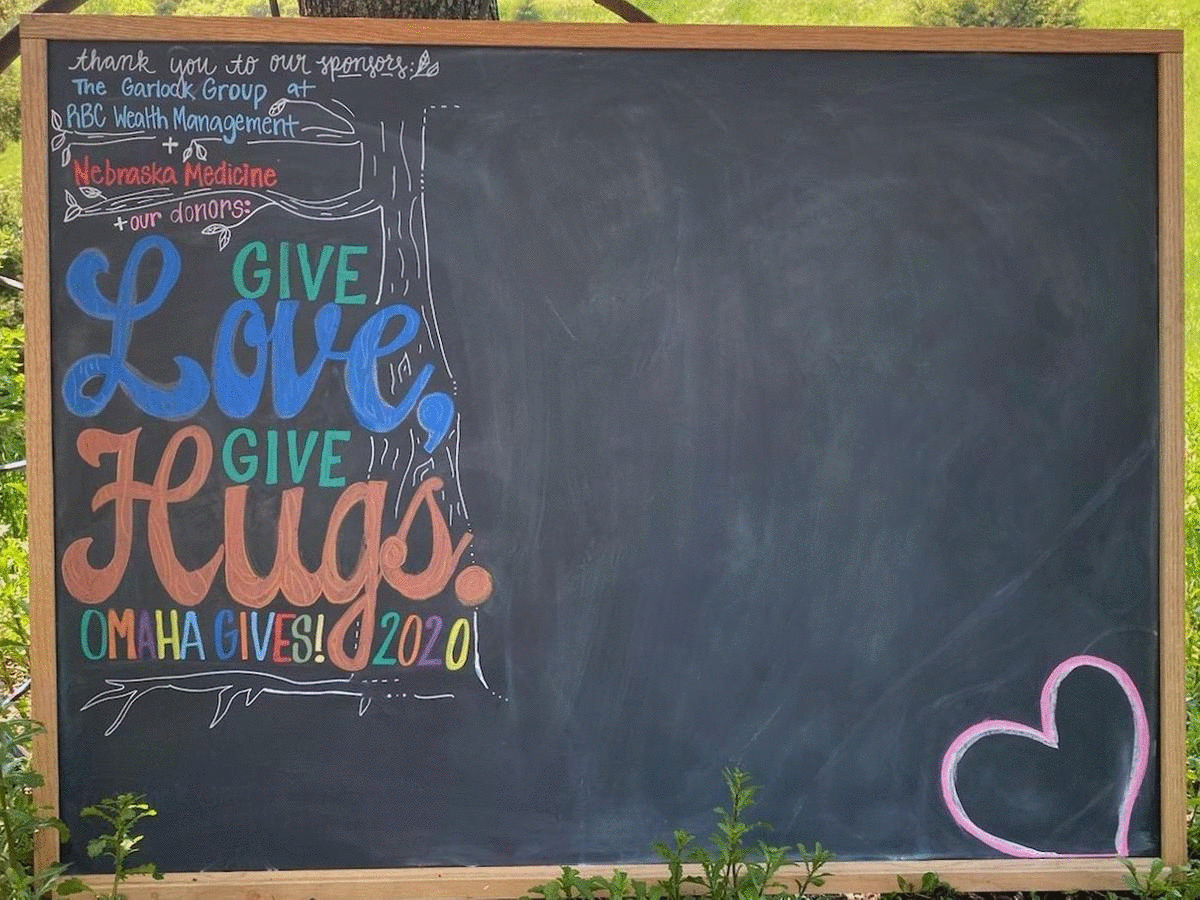 thank you to our sponsors:
The Garlock Group at
RBC Wealth Management
+
Nebraska Medicine
+our donors:
GIVE
Love,
GIVE
Hugs.
OMAHA GIVES! 2020